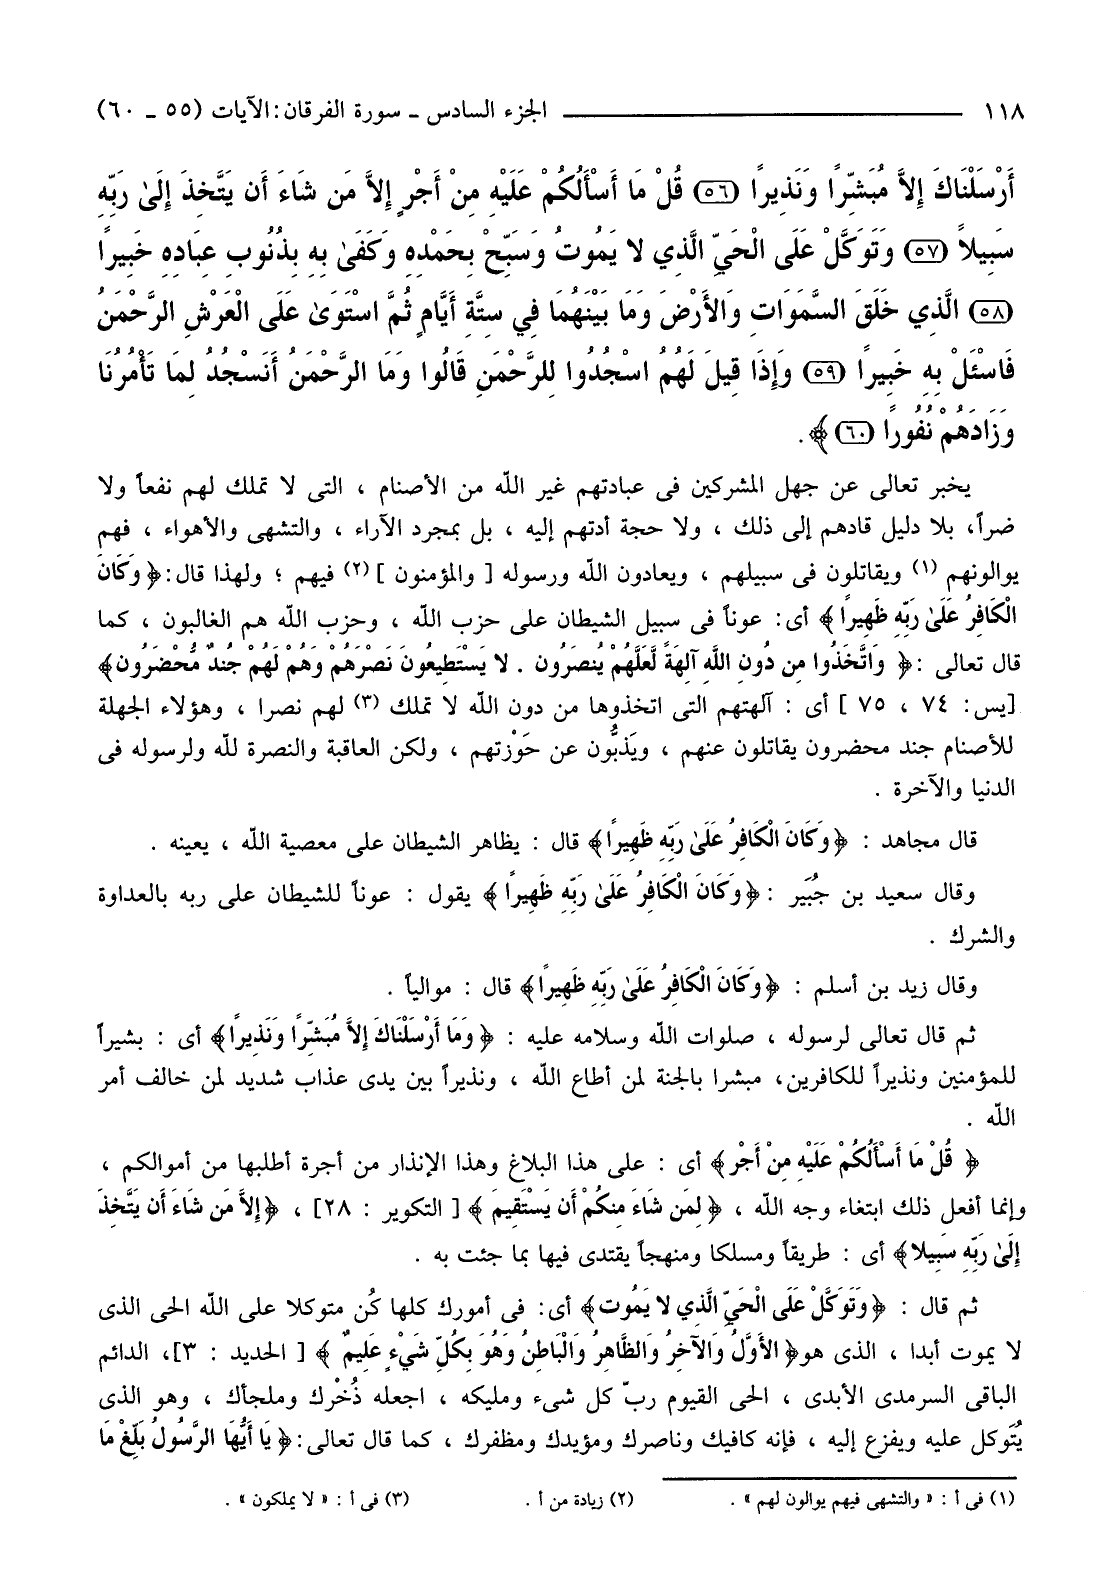 ١١٨ ــــــــــــــــ الجزء السادس ـ سورة الفرقان: الآيات (٥٥ ـ ٦٠)
أَرْسَلْنَاكَ إِلاَّ مُبَشِّرًا وَنَذِيرًا (٥٦) قُلْ مَا أَسْأَلُكُمْ عَلَيْهِ مِنْ أَجْرٍ إِلاَّ مَن شَاءَ أَن يَتَّخِذَ إِلَىٰ رَبِّهِ
سَبِيلاً (٥٧) وَتَوَكَّلْ عَلَى الْحَيِّ الَّذِي لا يَمُوتُ وَسَبِّحْ بِحَمْدِهِ وَكَفَىٰ بِهِ بِذُنُوبِ عِبَادِهِ خَبِيرًا
(٥٨) الَّذِي خَلَقَ السَّمَوَاتِ وَالأَرْضَ وَمَا بَيْنَهُمَا فِي سِتَّةِ أَيَّامٍ ثُمَّ اسْتَوَىٰ عَلَى الْعَرْشِ الرَّحْمَنُ
فَاسْئَلْ بِهِ خَبِيرًا (٥٩) وَإِذَا قِيلَ لَهُمُ اسْجُدُوا لِلرَّحْمَنِ قَالُوا وَمَا الرَّحْمَنُ أَنَسْجُدُ لِمَا تَأْمُرُنَا
وَزَادَهُمْ نُفُورًا (٦٠)﴾ .
يخبر تعالى عن جهل المشركين فى عبادتهم غير الله من الأصنام ، التى لا تملك لهم نفعاً ولا
ضراً، بلا دليل قادهم إلى ذلك ، ولا حجة أدتهم إليه ، بل بمجرد الآراء ، والتشهى والأهواء ، فهم
يوالونهم (١) ويقاتلون فى سبيلهم ، ويعادون الله ورسوله [ والمؤمنون ] (٢) فيهم ؛ ولهذا قال: ﴿ وَكَانَ
الْكَافِرُ عَلَىٰ رَبِّهِ ظَهِيرًا ﴾ أى: عوناً فى سبيل الشيطان على حزب الله ، وحزب الله هم الغالبون ، كما
قال تعالى :﴿ وَاتَّخَذُوا مِن دُونِ اللَّهِ آلِهَةً لَّعَلَّهُمْ يُنصَرُونَ . لا يَسْتَطِيعُونَ نَصْرَهُمْ وَهُمْ لَهُمْ جُندٌ مُّحْضَرُون﴾
[يس: ٧٤ ، ٧٥ ] أى : آلهتهم التى اتخذوها من دون الله لا تملك (٣) لهم نصرا ، وهؤلاء الجهلة
للأصنام جند محضرون يقاتلون عنهم ، ويَذبُّون عن حَوْزتهم ، ولكن العاقبة والنصرة لله ولرسوله فى
الدنيا والآخرة .
قال مجاهد : ﴿وَكَانَ الْكَافِرُ عَلَىٰ رَبِّهِ ظَهِيرًا﴾ قال : يظاهر الشيطان على معصية الله ، يعينه .
وقال سعيد بن جُبَير :﴿وَكَانَ الْكَافِرُ عَلَىٰ رَبِّهِ ظَهِيرًا ﴾ يقول : عوناً للشيطان على ربه بالعداوة
والشرك .
وقال زيد بن أسلم : ﴿وَكَانَ الْكَافِرُ عَلَىٰ رَبِّهِ ظَهِيرًا﴾ قال : موالياً .
ثم قال تعالى لرسوله ، صلوات الله وسلامه عليه : ﴿ وَمَا أَرْسَلْنَاكَ إِلاَّ مُبَشِّرًا وَنَذِيرًا﴾ أى : بشيراً
للمؤمنين ونذيراً للكافرين، مبشرا بالجنة لمن أطاع الله ، ونذيراً بين يدى عذاب شديد لمن خالف أمر
الله .
﴿ قُلْ مَا أَسْأَلُكُمْ عَلَيْهِ مِنْ أَجْرٍ﴾ أى : على هذا البلاغ وهذا الإنذار من أجرة أطلبها من أموالكم ،
وإنما أفعل ذلك ابتغاء وجه الله ، ﴿ لِمَن شَاءَ مِنكُمْ أَن يَسْتَقِيمَ ﴾ [ التكوير : ٢٨] ، ﴿إِلاَّ مَن شَاءَ أَن يَتَّخِذَ
إِلَىٰ رَبِّهِ سَبِيلا﴾ أى : طريقاً ومسلكا ومنهجاً يقتدى فيها بما جئت به .
ثم قال : ﴿وَتَوَكَّلْ عَلَى الْحَيِّ الَّذِي لا يَمُوت﴾ أى: فى أمورك كلها كُن متوكلا على الله الحى الذى
لا يموت أبدا ، الذى هو﴿ الأَوَّلُ وَالآخِرُ وَالظَّاهِرُ وَالْبَاطِنُ وَهُوَ بِكُلِّ شَيْءٍ عَلِيمٌ ﴾ [ الحديد : ٣]، الدائم
الباقى السرمدى الأبدى ، الحى القيوم ربّ كل شىء ومليكه ، اجعله ذُخْرك وملجأك ، وهو الذى
يُتَوكل عليه ويفزع إليه ، فإنه كافيك وناصرك ومؤيدك ومظفرك ، كما قال تعالى: ﴿ يَا أَيُّهَا الرَّسُولُ بَلِّغْ مَا
(١) فى أ : « والتشهى فيهم يوالون لهم » . (٢) زيادة من أ . (٣) فى أ : « لا يملكون » .